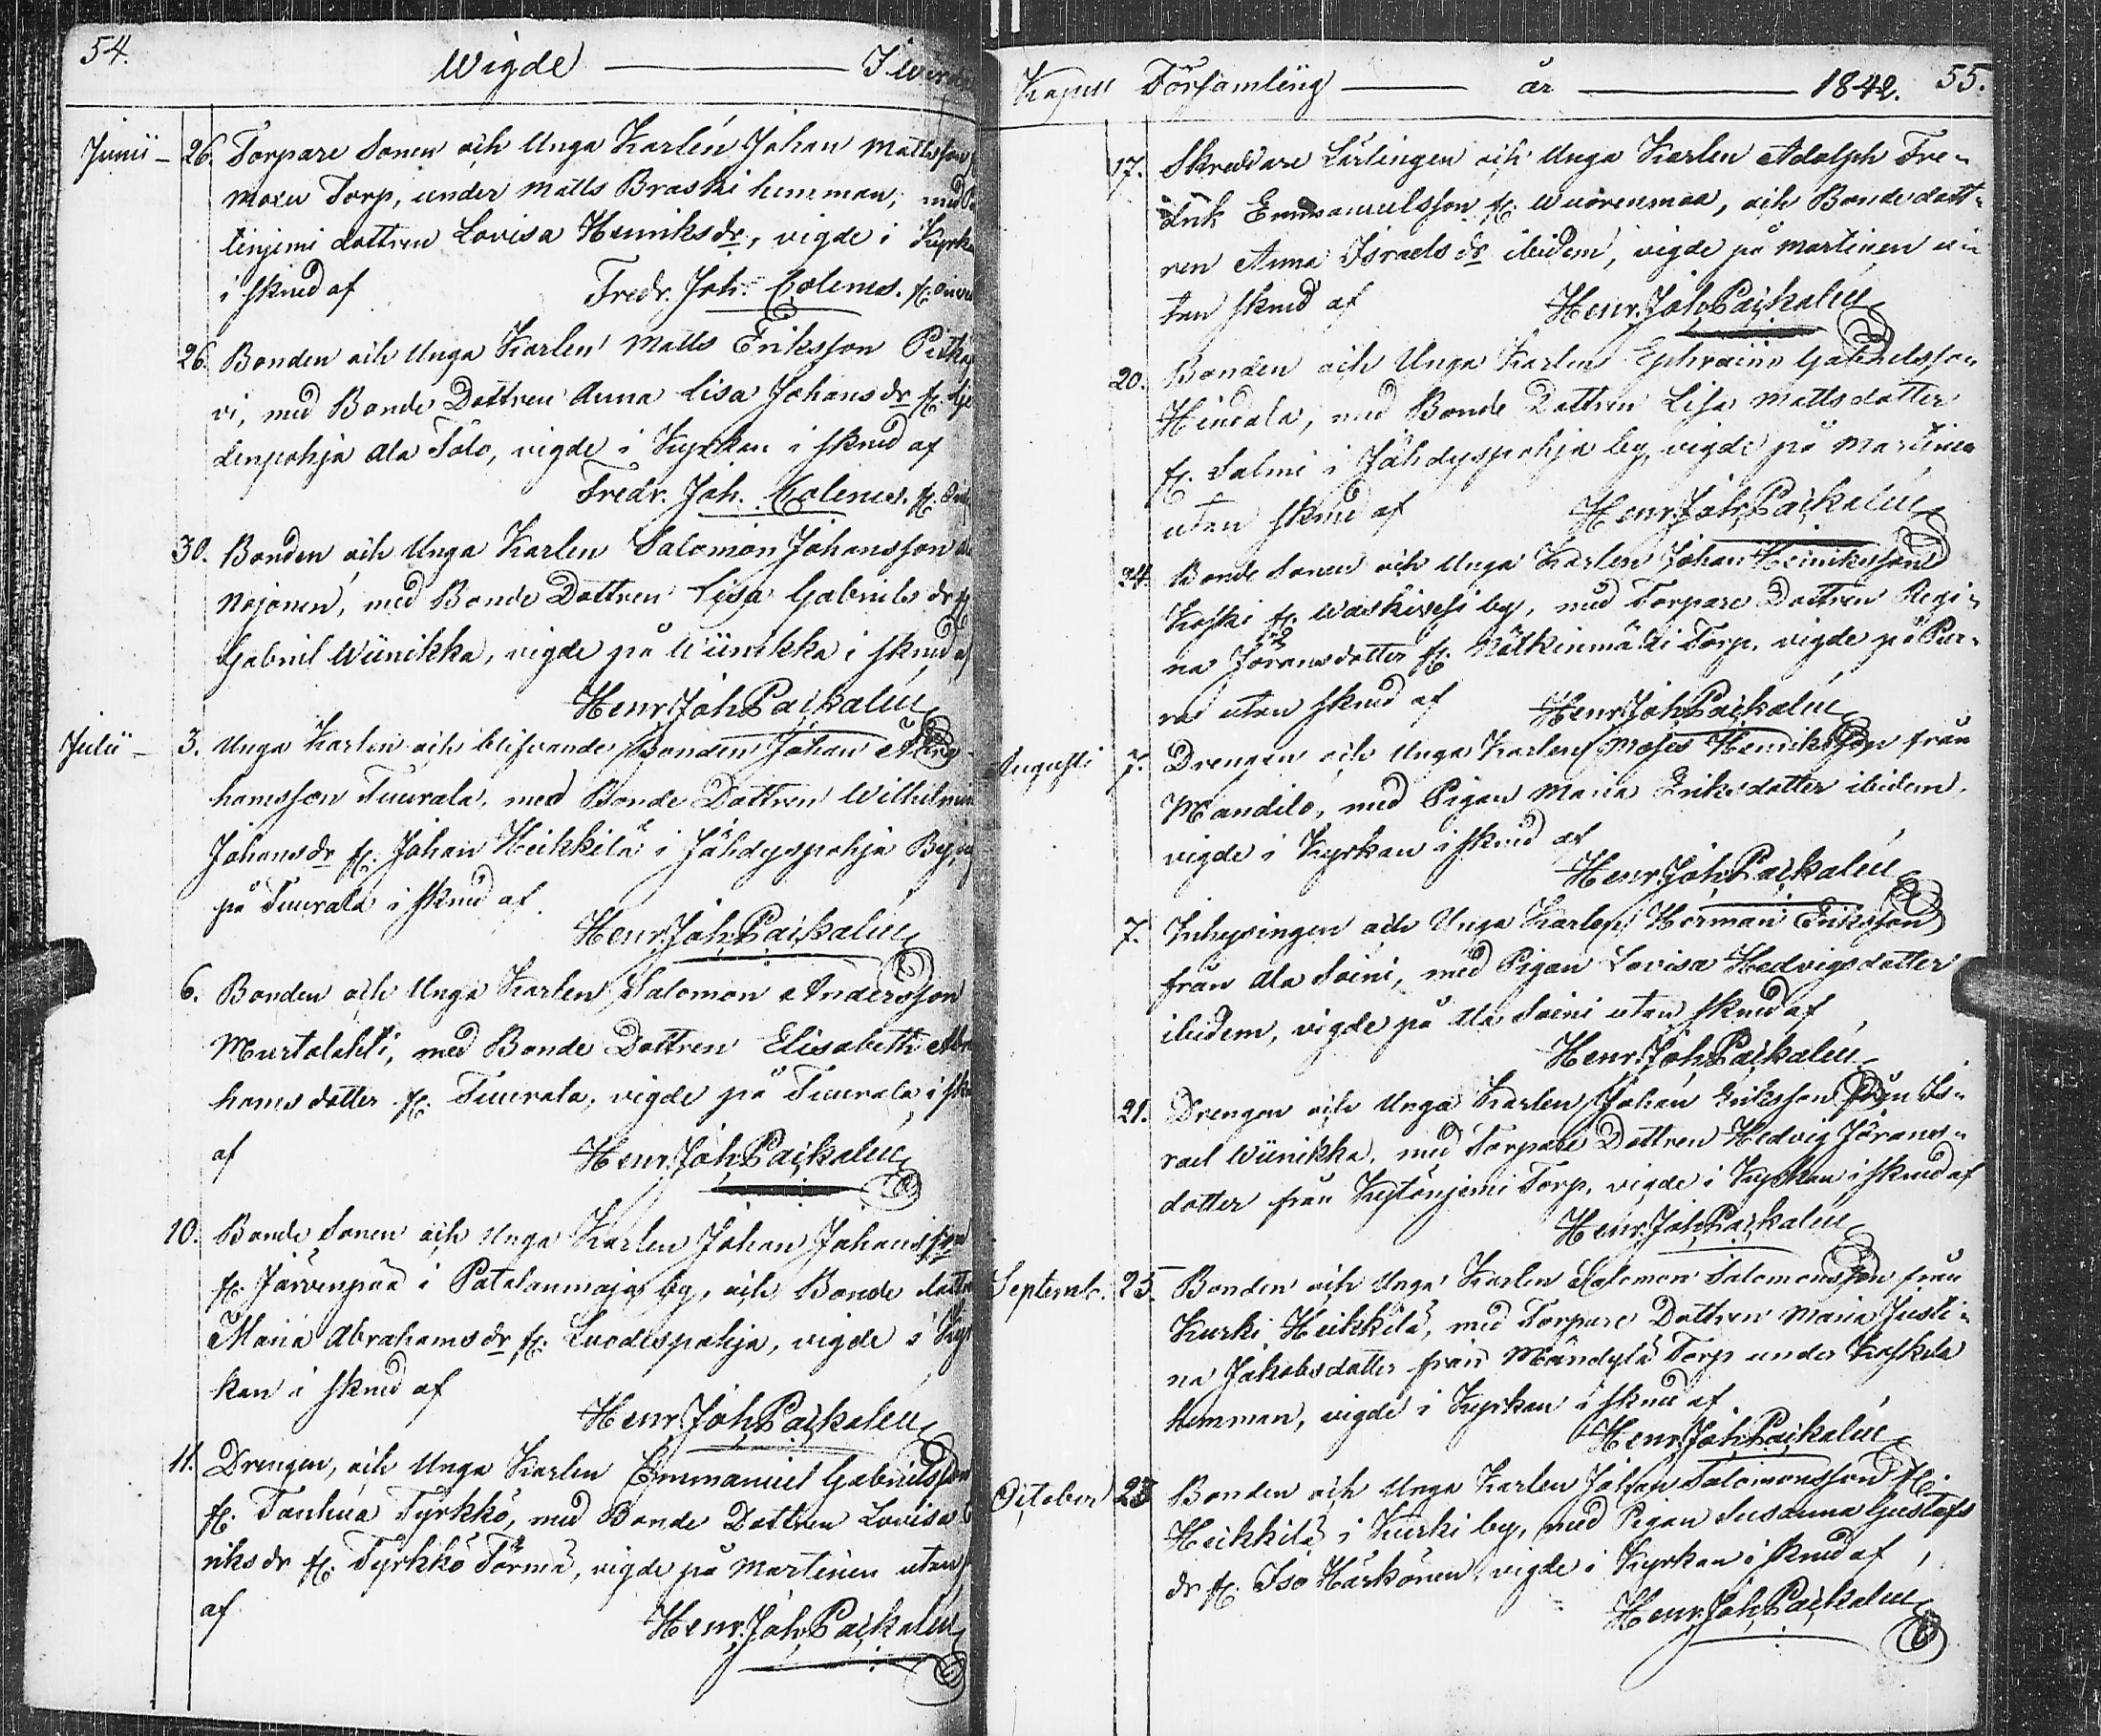 54.
Wigde
Junii – 26. Torpare Sonen och Unga Karlen Johan Mattsson
Torp, under Matts Braski hemman, med
dottren Lovisa Henriksdr, vigde i Kyrka
i skrud af Fredr. Joh.
26. Bonden och Unga Karlen Matts Eriksson
vi, med Bonde Dottren Anna Lisa Johansdr fr.
denpohja Ala Talo, vigde i Kyrkan i skrud af
Fredr. Joh.
30. Bonden och Unga Karlen Salomon Johansson
Nojonen, med Bonde Dottren Lisa Gabriels dr fr.
Gabriel Wiinikka, vigde på Wiinikka i skrud af
Henr. Joh. Paiskalen
Julii – 3. Unga Karlen och blifvande Bonden Johan Abra-
hamsson Tuurala, med Bonde Dottren Wilhelmin
Johansdr fr. Johan Heikkilä i Jähdyspohja By,
på Tuurala i skrud af
Henr. Joh. Paiskalen
6. Bonden och Unga Karlen Salomon Andersson
Murtolahti, med Bonde Dottren Elisabeth Abra
hams dotter fr. Tuurala, vigde på Tuurala i
af Henr. Joh. Paiskalen
10. Bonde Sonen och Unga Karlen Johan Johansson
fr. Järvenpää i Patalanmaja by, och Bonde
Maria Abrahamsdr fr. Luodespohja, vigde i Kyr
kan i skrud af
Henr. Joh. Paiskalen
11. Drengen, och Unga Karlen Emmanuel Gabrielsson
fr. Tanhua Tyrkkö, med Bonde Dottren Lovisa
riksdr fr. Tyrkkö Törmä, vigde på Martinen utan
af
Henr. Joh. Paiskalen
Kapell Församling år 1842. 55.
17. Skreddare Lärlingen och Unga Karlen Adolph Fre-
drik Emmanuelsson fr. Wuorenmaa, och Bondedott-
ren Anna Israels dr ibidem, vigde på Martinen u-
tan skrud af Henr. Joh. Paiskalen
20. Bonden och Unga Karlen Ephraim Gabrielsson
Hindala, med Bonde Dottren Lisa Mattsdotter
fr. Salmi i Jähdyspohja by, vigde på Martinen
utan skrud af Henr. Joh. Paiskalen
24. Bonde Sonen och Unga Karlen Johan Henriksson
Koski fr. Waskivesi by, med Torpare Dottren Regi-
na Göransdotter fr. Torp, vigde på Pur-
ra utan skrud af Henr. Joh. Paiskalen
Augusti 7. Drengen och Unga Karlen Moses Henriksson från
Mandilo, med Pigan Maria Eriksdotter ibidem,
vigde i Kyrkan i skrud af
Henr. Joh. Paiskalen
7. Inhysingen och Unga Karlen Herman Eriksson
från Ala Soini, med Pigan Lovisa Hedvigsdotter
ibidem, vigde på Ala Soini utan skrud af
Henr. Joh. Paiskalen
21. Drengen och Unga Karlen Johan Eriksson från Is-
rael Wiinikka, med Torpare Dottren Hedvig Jörans-
dotter från Torp, vigde i Kyrkan i skrud af
Henr. Joh. Paiskalen
Septemb. 25. Bonden och Unga Karlen Salomon Salomonsson från
Kurki Heikkilä, med Torpare Dottren Maria Justi-
na Jakobsdotter från Mändylä Torp under Koskela
hemman, vigde i Kyrkan i skrud af
Henr. Joh. Paiskalen
October 23 Bonden och Unga Karlen Johan Salomonsson fr.
Heikkilä i Kurki by, med Pigan Susanna Gustafs
dr fr. Iso Härkönen, vigde i Kyrkan i skrud af
Henr. Joh. Paiskalen